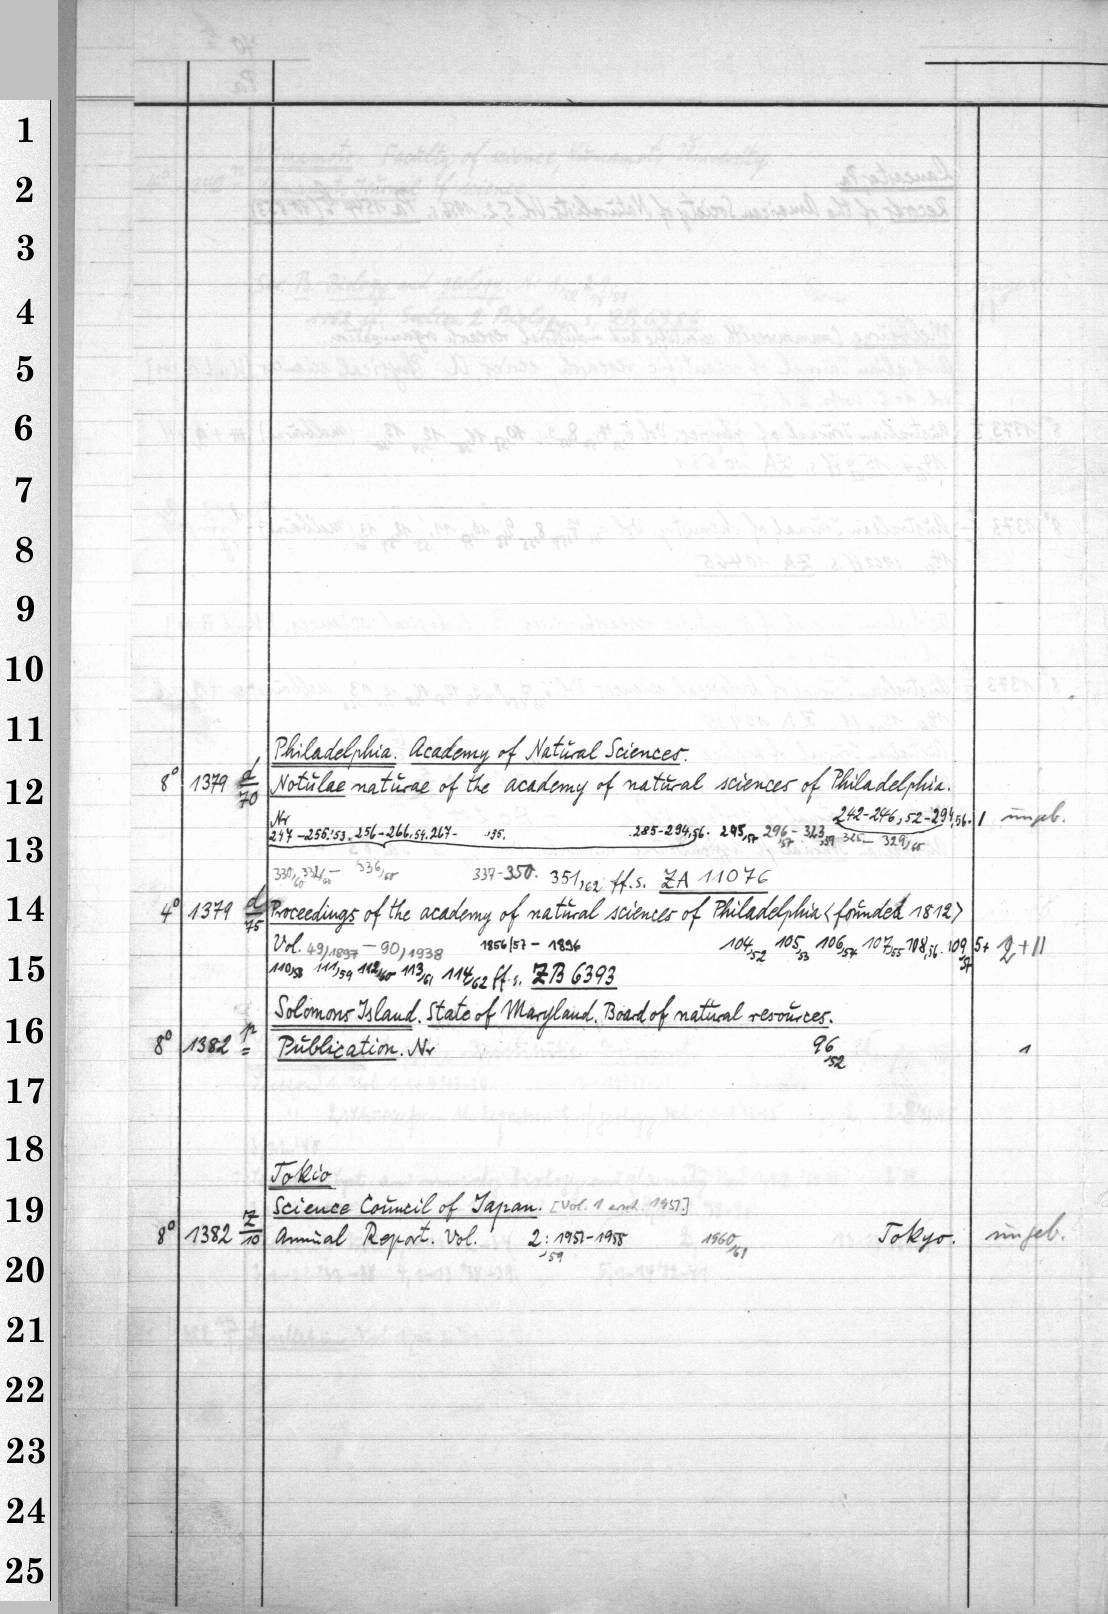 1
2
3
4
5
6
7
8
9
10
11
Philadelphia. Academy of Natural Sciences.
12
8° 1379 d/70 Notulae naturae of the academy of natural sciences of Philadelphia.
Nr 242-246,52-294,56. 1 ungeb.
13
247-255,'53. 256-266,54. 267- '55. 285-294,56. 295,57 296-323,59 325-329,60
330,60 336,60 337-350. 351,62 ff. s. ZA 11076
14
4° 1379 d/75 Proceedings of the academy of natural sciences of Philadelphia <founded 1812>
Vol. 49,1897-90,1938 1856/57-1896 104,52 105,53 106,54 107,55 108,56. 109,57 5+ 2+11
15
110,58 111,59 112,60 113,61 114,62 ff. s. ZB 6393
Solomons Island. State of Maryland. Board of natural resources.
16
8° 1382 p Publication. Nr 96,'52 1
17
18
Tokio
19
Science Council of Japan. [Vol. 1 ersch. 1957.]
8° 1382 Z/10 Annual Report. Vol. 2: 1957-1958,'59 1960,'61 Tokyo. ungeb.
20
21
22
23
24
25